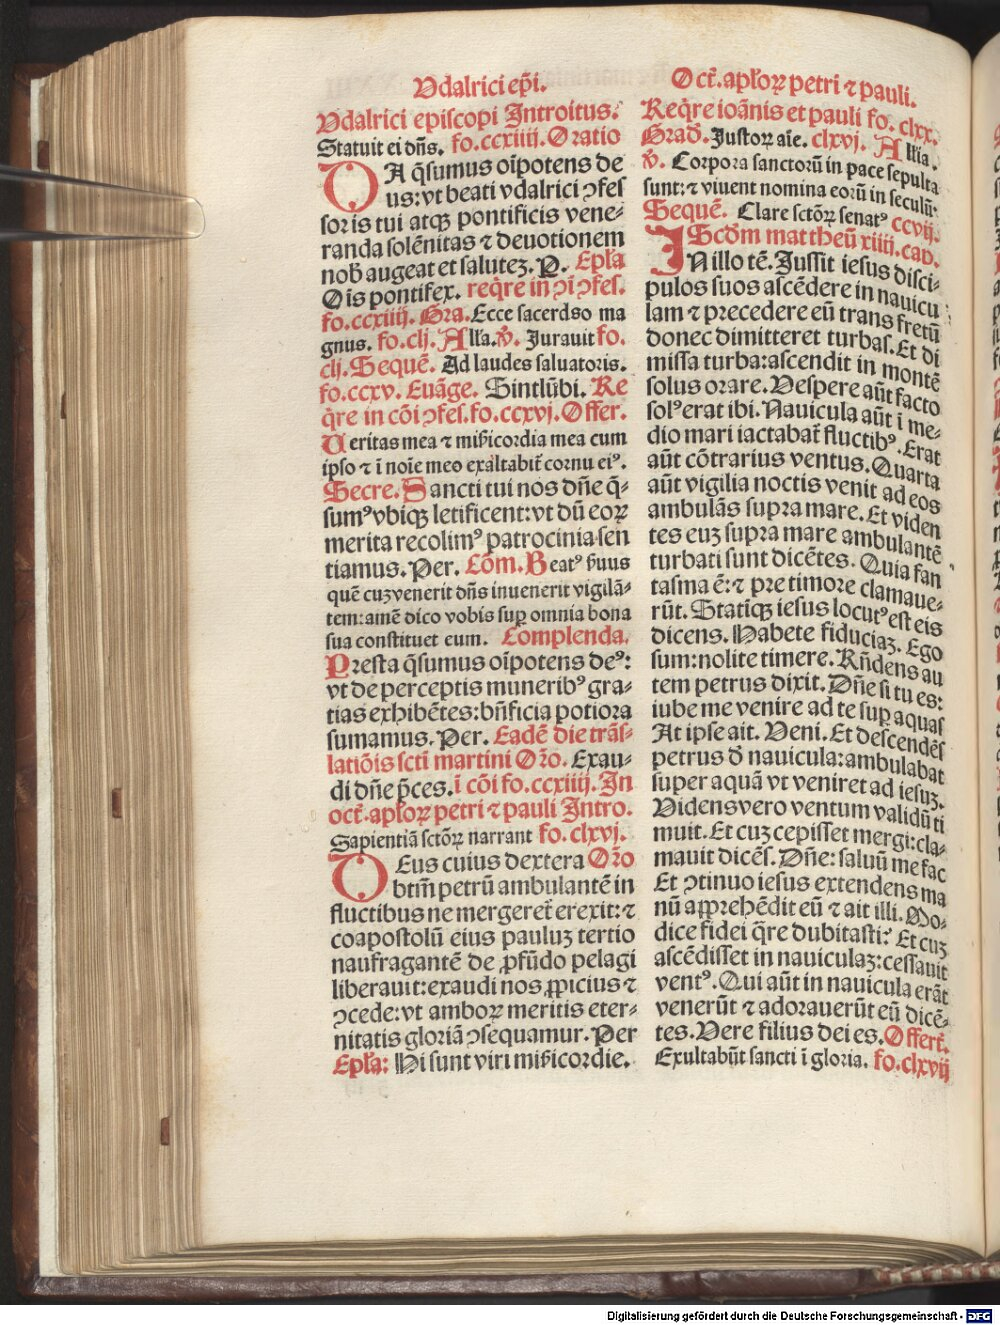 Vdalrici ep̄i.
Vdalrici episcopi Introitus.
Statuit ei dn̄s. fo.ccxiiii. Oratio
DA q̄sumus oīpotens de
us: vt beati vdalrici ꝯfes
soris tui atqꝫ pontificis vene⸗
randa solēnitas ⁊ deuotionem
nob̄ augeat et salutez. P. Ep̄la
Oīs pontifex. reqͥre in ꝯi ꝯfes.
fo.ccxiiij. Gra. Ecce sacerdso ma
gnus. fo.clj. All'a. v̄. Jurauit fo.
clj. Sequē. Ad laudes saluatoris.
fo.ccxv. Euāge. Sintlūbi. Re
q̄re in cōi ꝯfes. fo.ccxvj. Offer.
Ueritas mea ⁊ mīs̄icordia mea cum
ipso ⁊ ī noīe meo exaltabit̄ cornu eiꝰ.
Secre. Sancti tui nos dn̄e q̄⸗
sumꝰ vbiqꝫ letificent: vt dū eoꝝ
merita recolimꝰ patrocinia sen
tiamus. Per. Cōm. Beatꝰ s̄uus
quē cuz venerit dn̄s inuenerit vigilā⸗
tem: amē dico vobis sup omnia bona
sua constituet eum. Complenda.
Presta q̄sumus oīpotens deꝰ:
vt de perceptis muneribꝰ gra⸗
tias exhibētes: bn̄ficia potiora
sumamus. Per. Eadē die trās⸗
latiōis sct̄i martini Oꝛo. Exau⸗
di dn̄e p̄ces. ī cōi fo.ccxiiij. In
oct̄. apl̄oꝝ petri ⁊ pauli Intro.
Sapientiā sctōꝝ narrant fo. clxvj.
DEus cuius dextera Oꝛo
btm̄ petrū ambulantē in
fluctibus ne mergeret̄ erexit: ⁊
coapostolū eius pauluz tertio
naufragantē de ꝓfūdo pelagi
liberauit: exaudi nos ꝓpicius ⁊
ꝯcede: vt amboꝝ meritis eter⸗
nitatis gloriā ꝯsequamur. Per
Ep̄la: Hi sunt viri mīs̄icordie.
Oct̄. apl̄oꝝ petri ⁊ pauli.
Req̄re ioānis et pauli fo. clxx.
Grad̄. Justoꝝ aīe. clxvj. Allīa.
v̄. Corpora sanctorū in pace sepulta
sunt: ⁊ viuent nomina eorū in seculū.
Sequē. Clare sctōꝝ senatꝰ ccvij.
Scdm mattheū xiiii. cap.
IN illo tē. Jussit iesus disci⸗
pulos suos ascēdere in nauicu
lam ⁊ precedere eū trans fretū
donec dimitteret turbas. Et di
missa turba: ascendit in montē
solus orare. Vespere aūt facto
solꝰ erat ibi. Nauicula aūt ī me⸗
dio mari iactabat̄ fluctibꝰ. Erat
aūt cōtrarius ventus. Quarta
aūt vigilia noctis venit ad eos
ambulās supra mare. Et viden
tes euz supra mare ambulantē
turbati sunt dicētes. Quia fan
tasma ē: ⁊ pre timore clamaue⸗
rūt. Statiqꝫ iesus locutꝰ est eis
dicens. Habete fiduciaz. Ego
sum: nolite timere. Rn̄dens au
tem petrus dixit. Dn̄e si tu es:
iube me venire ad te sup aquas
At ipse ait. Veni. Et descendēs
petrus d̄ nauicula: ambulabat
super aquā vt veniret ad iesuz.
Vidensvero ventum validū ti
muit. Et cuz cepisset mergi: cla⸗
mauit dicēs. Dn̄e: saluū me fac
Et ꝯtinuo iesus extendens ma
nū apprehēdit eū ⁊ ait illi. Mo⸗
dice fidei q̄re dubitasti? Et cuz
ascēdisset in nauiculaz: cessauit
ventꝰ. Qui aūt in nauicula erāt
venerūt ⁊ adorauerūt eū dicē⸗
tes. Vere filius dei es. Offert̄.
Exultabūt sancti ī gloria. fo.clxvij
Digitalisierung gefördert durch die Deutsche Forschungsgemeinschaft - DFG